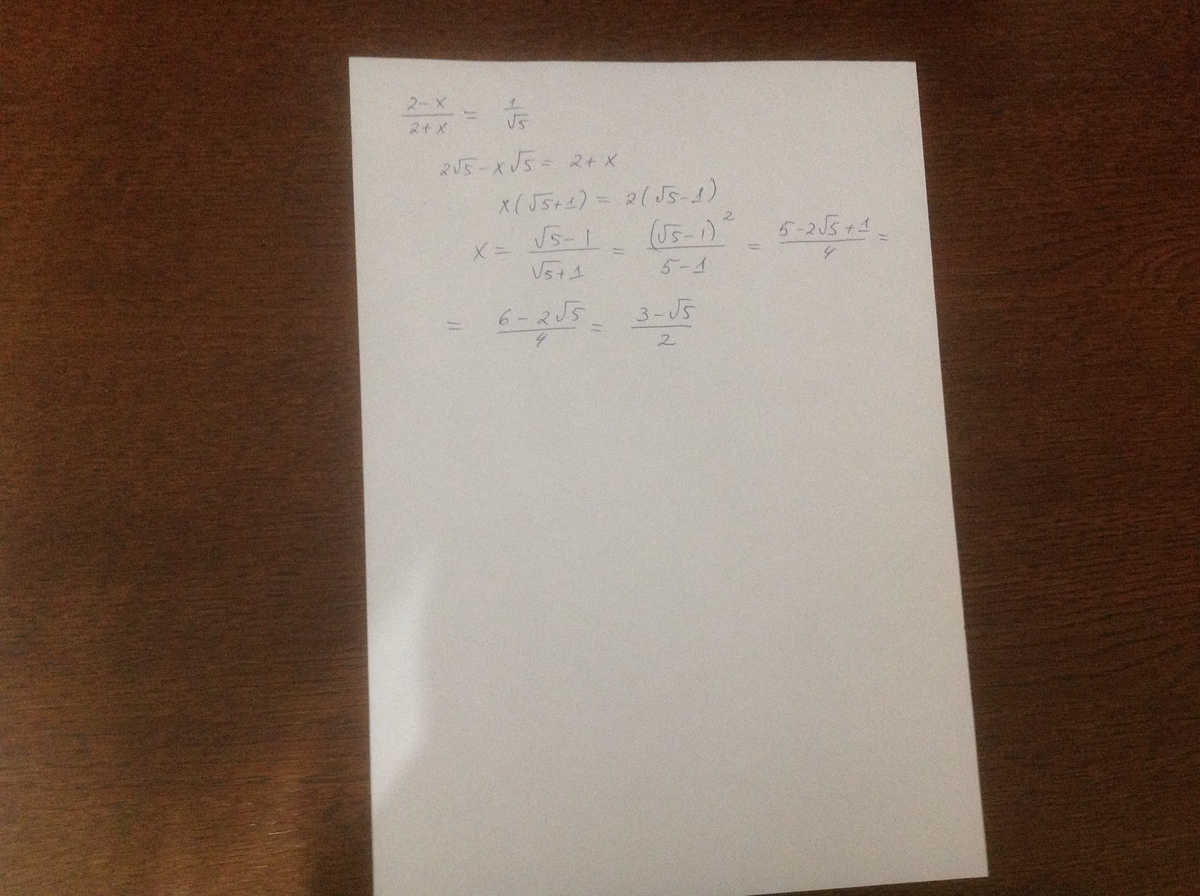 (2-x)/(2+x) = 1/√5
2√5 - x√5 = 2 + x
x(√5+1) = 2(√5-1)
x = (√5-1)/(√5+1) = (√5-1)²/(5-1) = (5-2√5+1)/4 =
= (6-2√5)/4 = (3-√5)/2